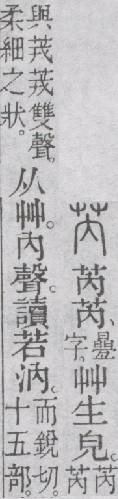 芮 芮芮、疊字。艸生皃。芮芮
與茙茙雙聲。柔細之狀。从艸。內聲。讀若汭。而銳切。十五部。